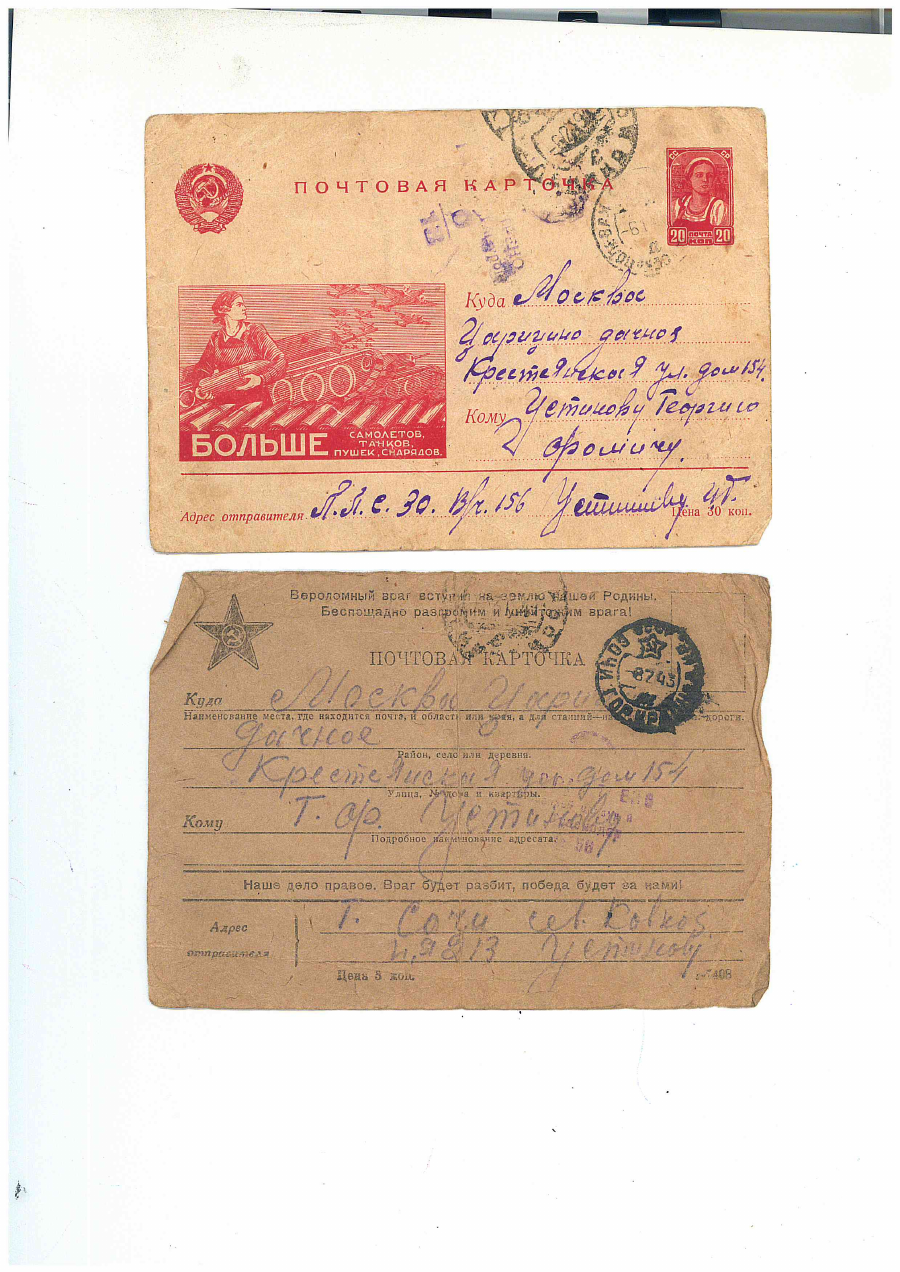 ПОЧТОВАЯ КАРТОЧКА
СС СР
ПОЧТА
20 КОП 20
Куда Москвоя
Царицино дачноя
Крестеянская ул. дом 154.
Кому Устинову Георгию
Фомичу.
БОЛЬШЕ САМОЛЕТОВ,
ТАНКОВ,
ПУШЕК, СНАРЯДОВ.
Адрес отправителя П.П.С. 30. В/ч. 156
Цена 30 коп.
Вероломный враг вступил на землю нашей Родины.
Беспощадно разгромим и уничтожим врага!
ПОЧТОВАЯ КАРТОЧКА
СОЧИ
8 7 43
Куда Москва Цари
Наименование места, где находится почта, и области или края, а для станций
дороги.
Дачное
Район, село или деревня.
Крестеянская ул. дом 154
Улица, № дома и квартиры.
Кому Г. Ф. Устинову
Подробное наименование адресата.
Наше дело правое. Враг будет разбит, победа будет за нами!
Адрес
отправителя
Г. Сочи сев. Кавказ
Устинов
Цена 3 коп.